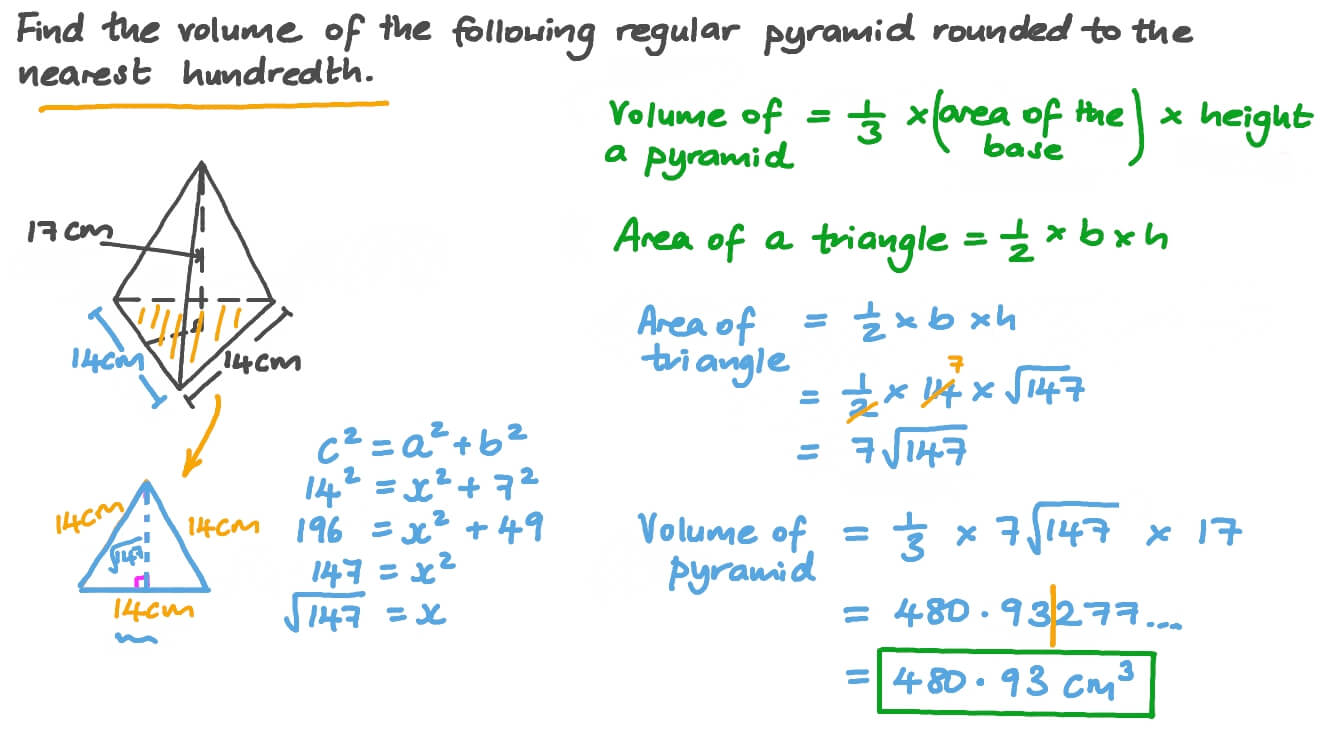 Find the volume of the following regular pyramid rounded to the
nearest hundredth.
Volume of a pyramid = 1/3 × (area of the base) × height
Area of a triangle = 1/2 × b × h
17cm
14cm
14cm
14cm
14cm
√147
14cm
c² = a² + b²
14² = x² + 7²
196 = x² + 49
147 = x²
√147 = x
Area of triangle = 1/2 × b × h
7
= 1/2 × 14 × √147
= 7√147
Volume of pyramid = 1/3 × 7√147 × 17
= 480·93277...
= 480·93 cm³